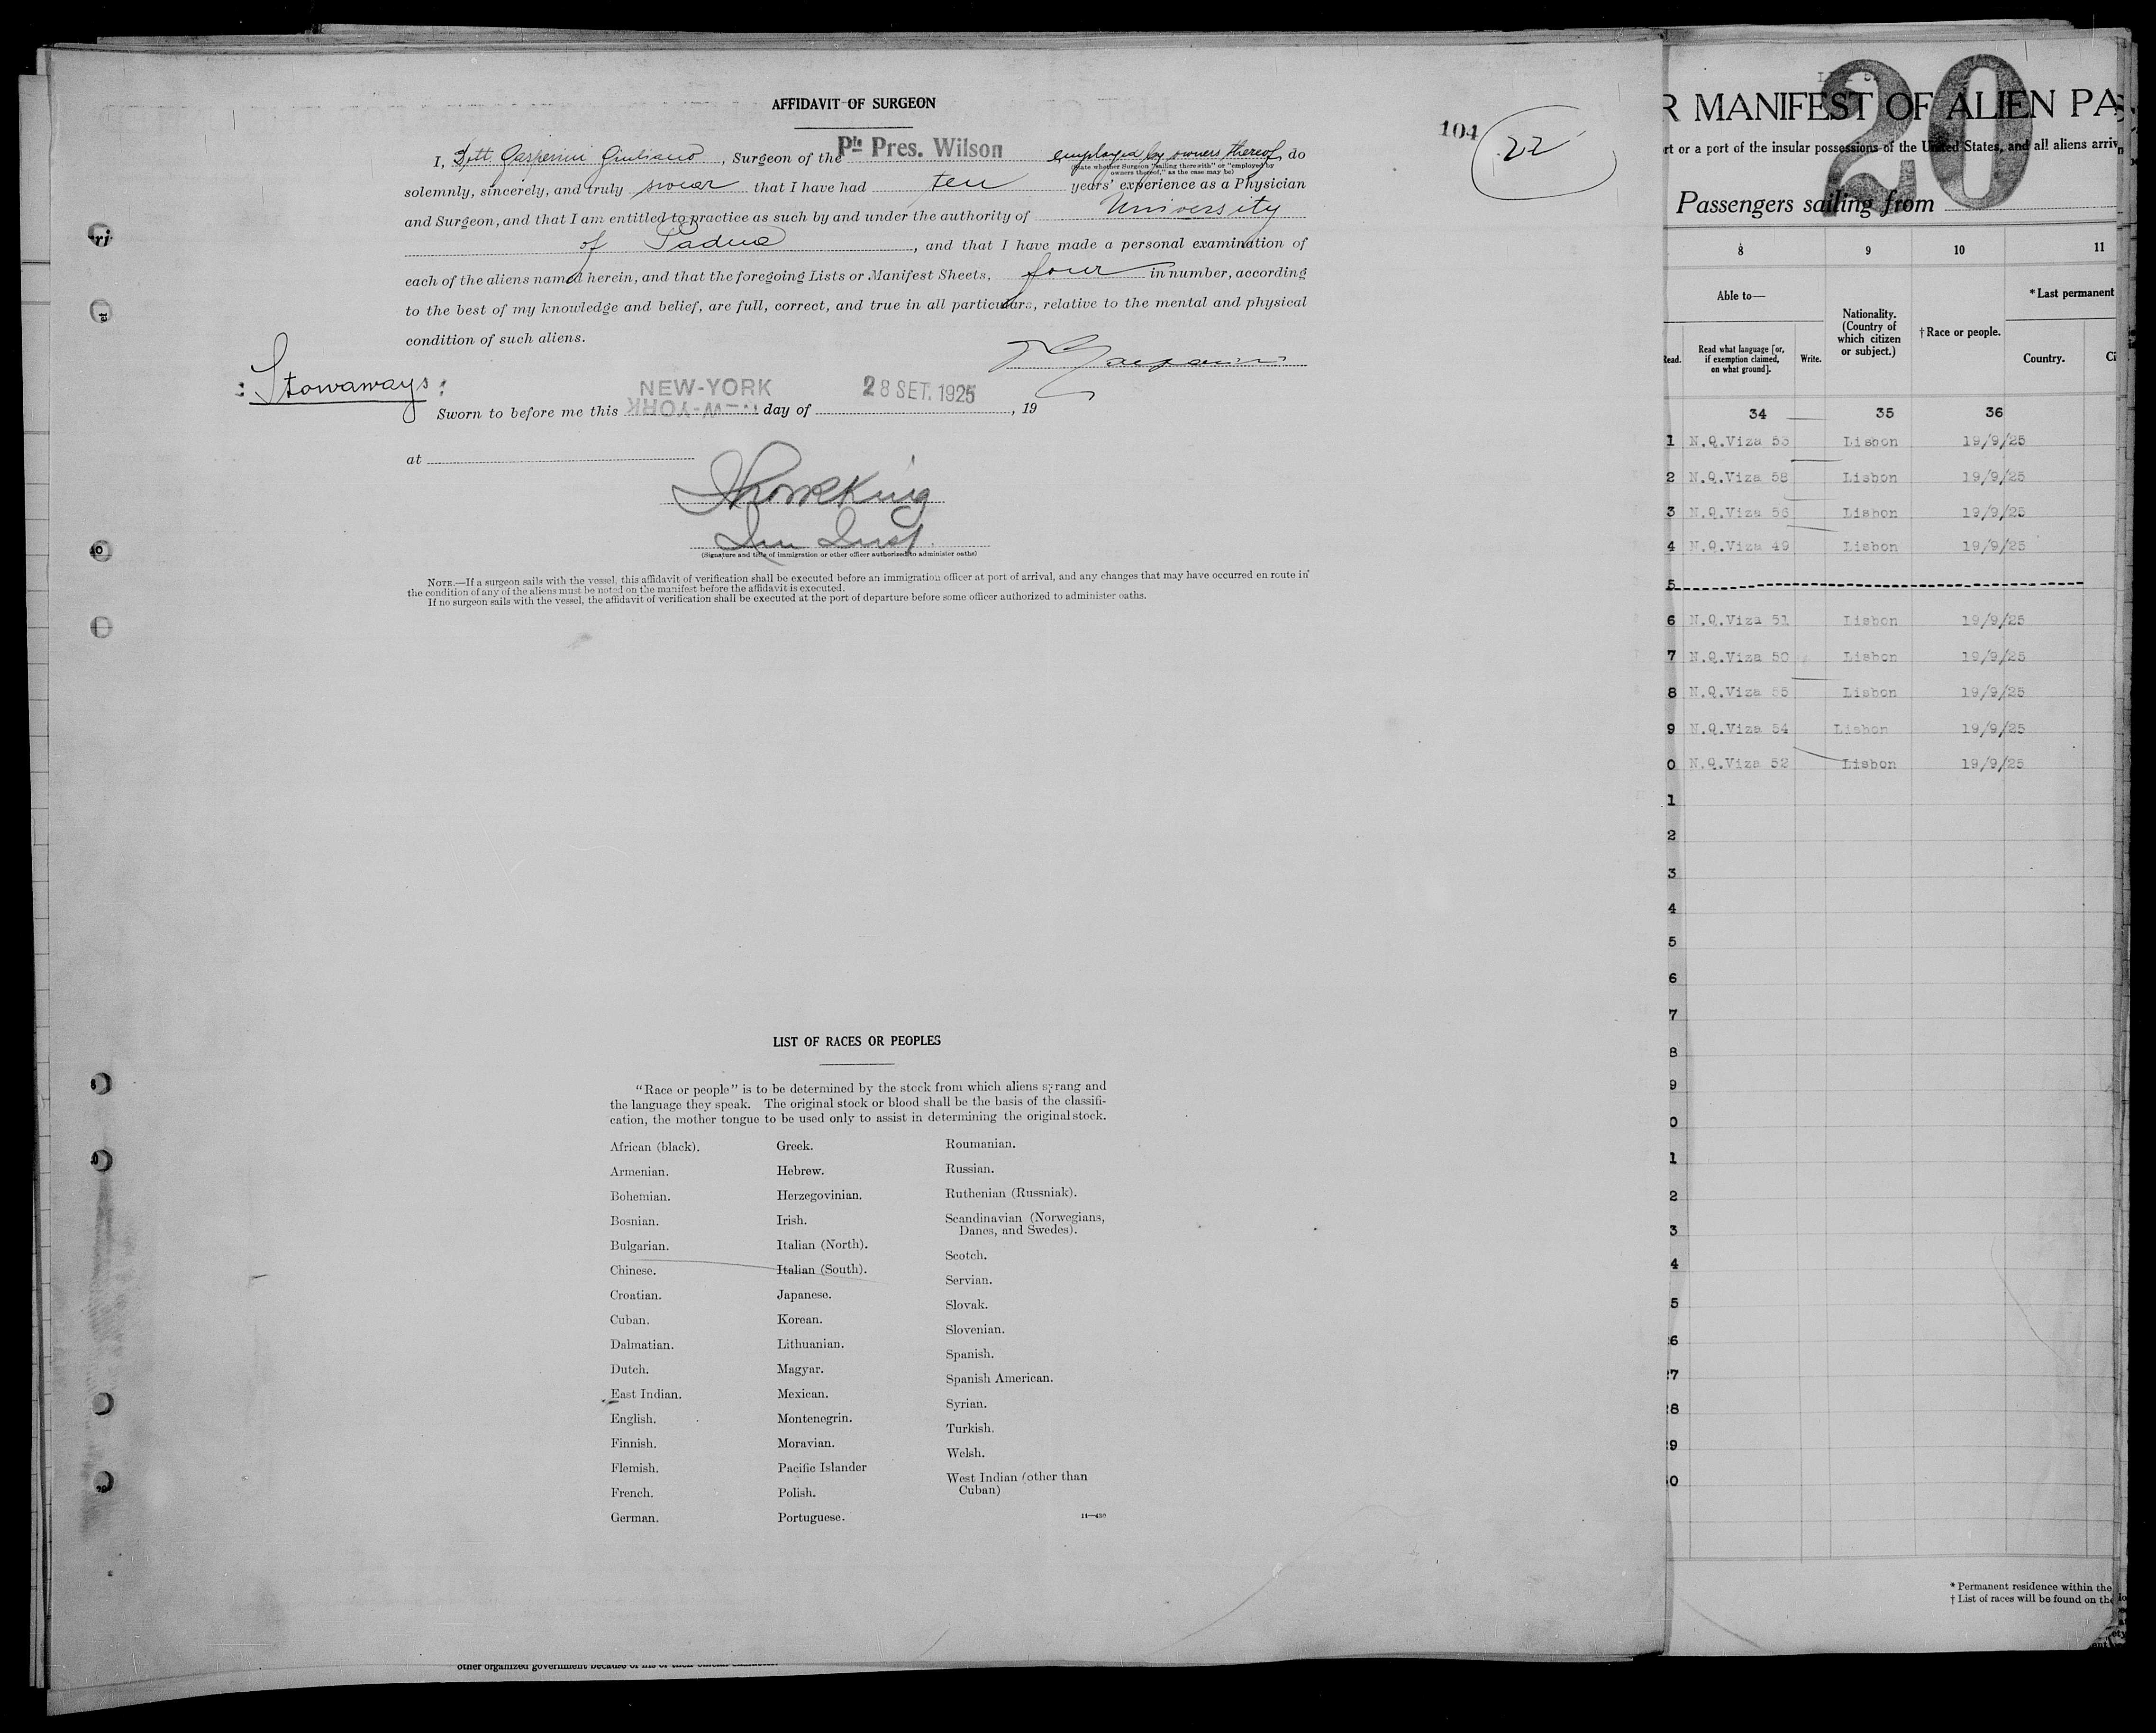 AFFIDAVIT OF SURGEON
104
22
I, Dott Gasperini Giuliano, Surgeon of the Pfo Pres. Wilson employed by owners thereof, do
(State whether Surgeon "sailing therewith" or "employed by owners thereof," as the case may be)
solemnly, sincerely, and truly swear that I have had ten years' experience as a Physician
and Surgeon, and that I am entitled to practice as such by and under the authority of University
of Padua, and that I have made a personal examination of
each of the aliens named herein, and that the foregoing Lists or Manifest Sheets, four in number, according
to the best of my knowledge and belief, are full, correct, and true in all particulars, relative to the mental and physical
condition of such aliens.
: Stowaways :
NEW-YORK
28 SET. 1925
Sworn to before me this NEW-YORK day of, 19
at
(Signature and title of immigration or other officer authorized to administer oaths)
NOTE.—If a surgeon sails with the vessel, this affidavit of verification shall be executed before an immigration officer at port of arrival, and any changes that may have occurred en route in
the condition of any of the aliens must be noted on the manifest before the affidavit is executed.
If no surgeon sails with the vessel, the affidavit of verification shall be executed at the port of departure before some officer authorized to administer oaths.
LIST OF RACES OR PEOPLES
"Race or people" is to be determined by the stock from which aliens sprang and
the language they speak. The original stock or blood shall be the basis of the classifi-
cation, the mother tongue to be used only to assist in determining the original stock.
African (black).
Armenian.
Bohemian.
Bosnian.
Bulgarian.
Chinese.
Croatian.
Cuban.
Dalmatian.
Dutch.
East Indian.
English.
Finnish.
Flemish.
French.
German.
Greek.
Hebrew.
Herzegovinian.
Irish.
Italian (North).
Italian (South).
Japanese.
Korean.
Lithuanian.
Magyar.
Mexican.
Montenegrin.
Moravian.
Pacific Islander
Polish.
Portuguese.
Roumanian.
Russian.
Ruthenian (Russniak).
Scandinavian (Norwegians,
Danes, and Swedes).
Scotch.
Servian.
Slovak.
Slovenian.
Spanish.
Spanish American.
Syrian.
Turkish.
Welsh.
West Indian (other than
Cuban)
11—430
20
R MANIFEST OF ALIEN PA
rt or a part of the insular possessions of the United States, and all aliens arriv
Passengers sailing from
8 9 10 11
Able to—
Read.
Read what language [or,
if exemption claimed,
on what ground].
Write.
Nationality.
(Country of
which citizen
or subject.)
†Race or people.
*Last permanent
Country.
34 35 36
1 N.Q.Viza 53 Lisbon 19/9/25
2 N.Q.Viza 58 Lisbon 19/9/25
3 N.Q.Viza 56 Lisbon 19/9/25
4 N.Q.Viza 49 Lisbon 19/9/25
5
6 N.Q.Viza 51 Lisbon 19/9/25
7 N.Q.Viza 50 Lisbon 19/9/25
8 N.Q.Viza 55 Lisbon 19/9/25
9 N.Q.Viza 54 Lisbon 19/9/25
0 N.Q.Viza 52 Lisbon 19/9/25
1
2
3
4
5
6
7
8
9
0
1
2
3
4
5
6
7
8
9
0
* Permanent residence within the
† List of races will be found on the